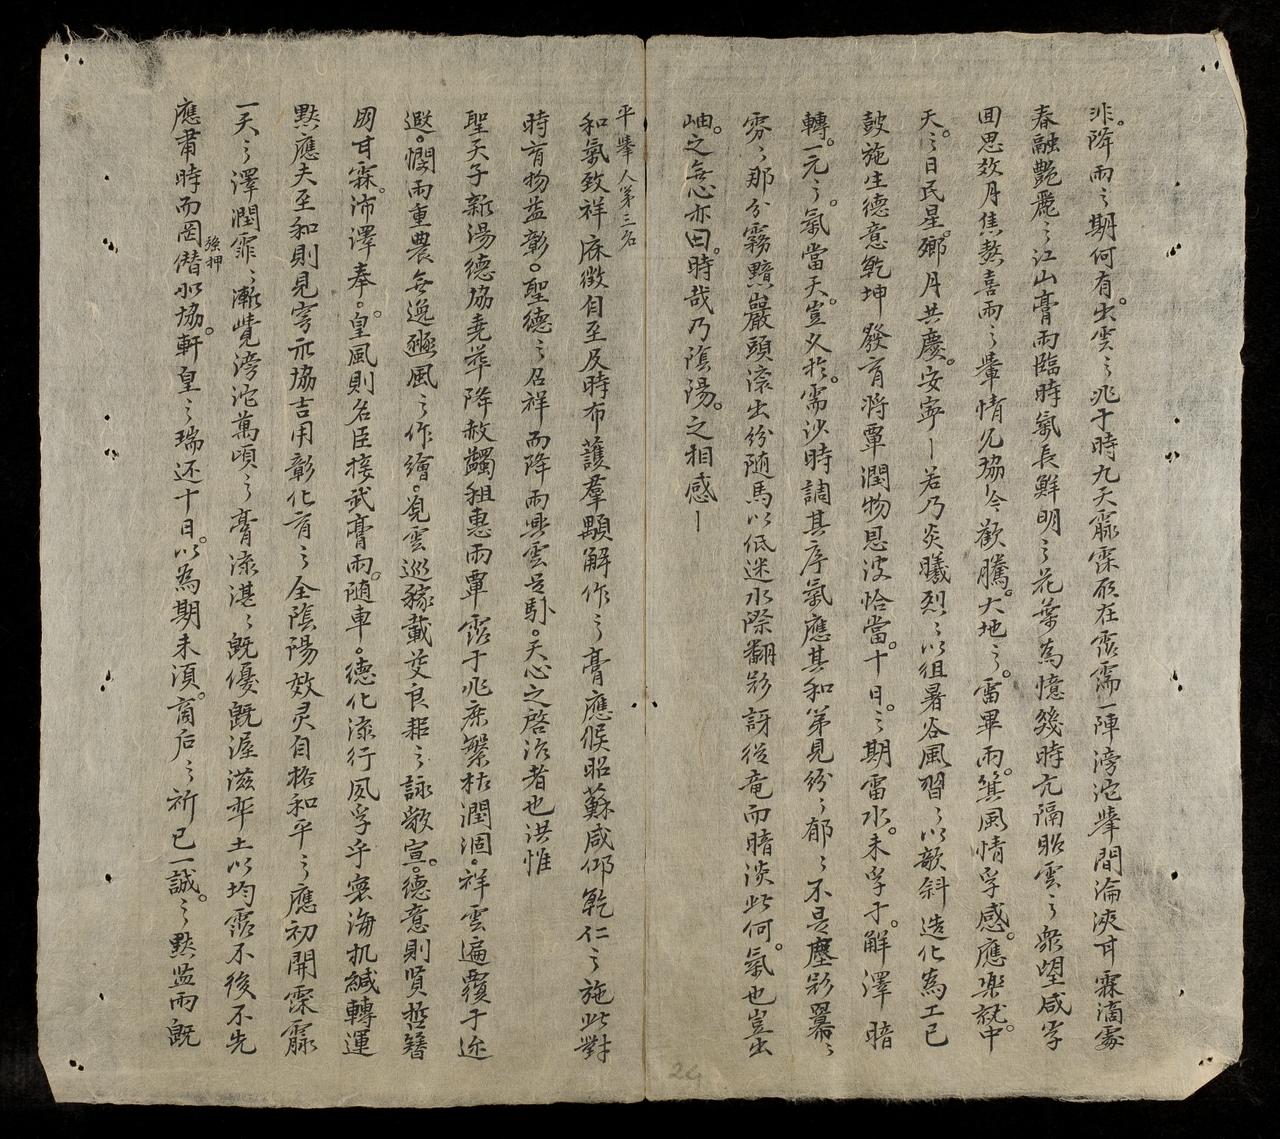 非降雨之期何有出雲之兆于時九天霢霂所在霑濡一陣滂沱擧間淪浹甘霖滴處
春融艷麗之江山膏雨臨時氣長鮮明之花葉為憶幾時亢隔昭雲之衆望咸孚
回思数月焦熬喜雨之羣情允協令歡騰大地之雷畢雨箕風情孚感應樂就中
天之日民星鄉月共慶安寧若乃炎曦烈烈以徂暑谷風習習以欹斜造化為工已
鼓施生德意乾坤發育将覃潤物恩波恰當十日之期雷水未孚于解澤暗
轉一元之氣當天豈久於需沙時調其序氣應其和第見紛紛郁郁不是塵影羃羃
雰雰那分霧黯巖頭滚出紛随馬以低迷水際翻影訝從竜而暗淡此何氣也豈出
岫之無心亦曰時哉乃陰陽之相感
平擧人第三名
和氣致祥庥徴自至及時布護羣顒解作之膏應候昭蘇咸仰乾仁之施此對
時育物益彰聖德之召祥而降雨興雲足馭天心之啓沃者也洪惟
聖天子新湯德協堯華降赦蠲租惠雨覃霑于兆庶繁枯潤涸祥雲遍覆于迩
遐憫雨重農無逸豳風之作繪覓雲巡稼載芟良耜之詠敷宣德意則贤哲簪
因甘霖沛澤奉皇風則名臣接武膏雨随車德化流行夙孚乎寰海机緘轉運
黙應夫至和則見穹示協吉用彰化育之全陰陽效灵自格和平之應初開霂霢
一天之澤潤霏霏漸覺滂沱萬頃之膏流湛湛既優既渥滋率土以均霑不後不先
應肅時而罔僣似協軒皇之瑞还十日以為期未湏商后之祈已一誠之黙监雨既
強押
24